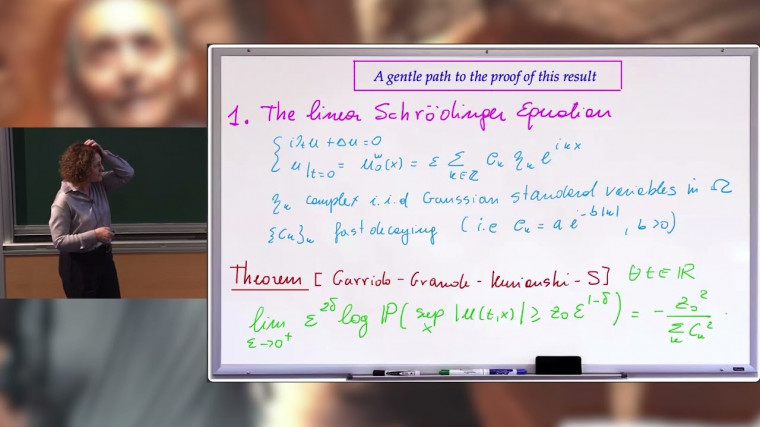 A gentle path to the proof of this result
1. The linear Schrödinger Equation
{ i∂ₜu + Δu = 0
u|ₜ₌₀ = u₀^ω(x) = ε ∑_{k∈ℤ} cₖ ηₖ e^{ikx}
ηₖ complex i.i.d Gaussian standard variables in Ω
{cₖ}ₖ fast decaying (i.e cₖ = a e^{-b|k|}, b>0)
Theorem [Garrido - Grande - Kurianski - S] ∀ t ∈ ℝ
lim_{ε→0⁺} ε^{2δ} log ℙ( sup_x |u(t,x)| ≥ z₀ ε^{1-δ} ) = - z₀² / ∑ₖ cₖ² .